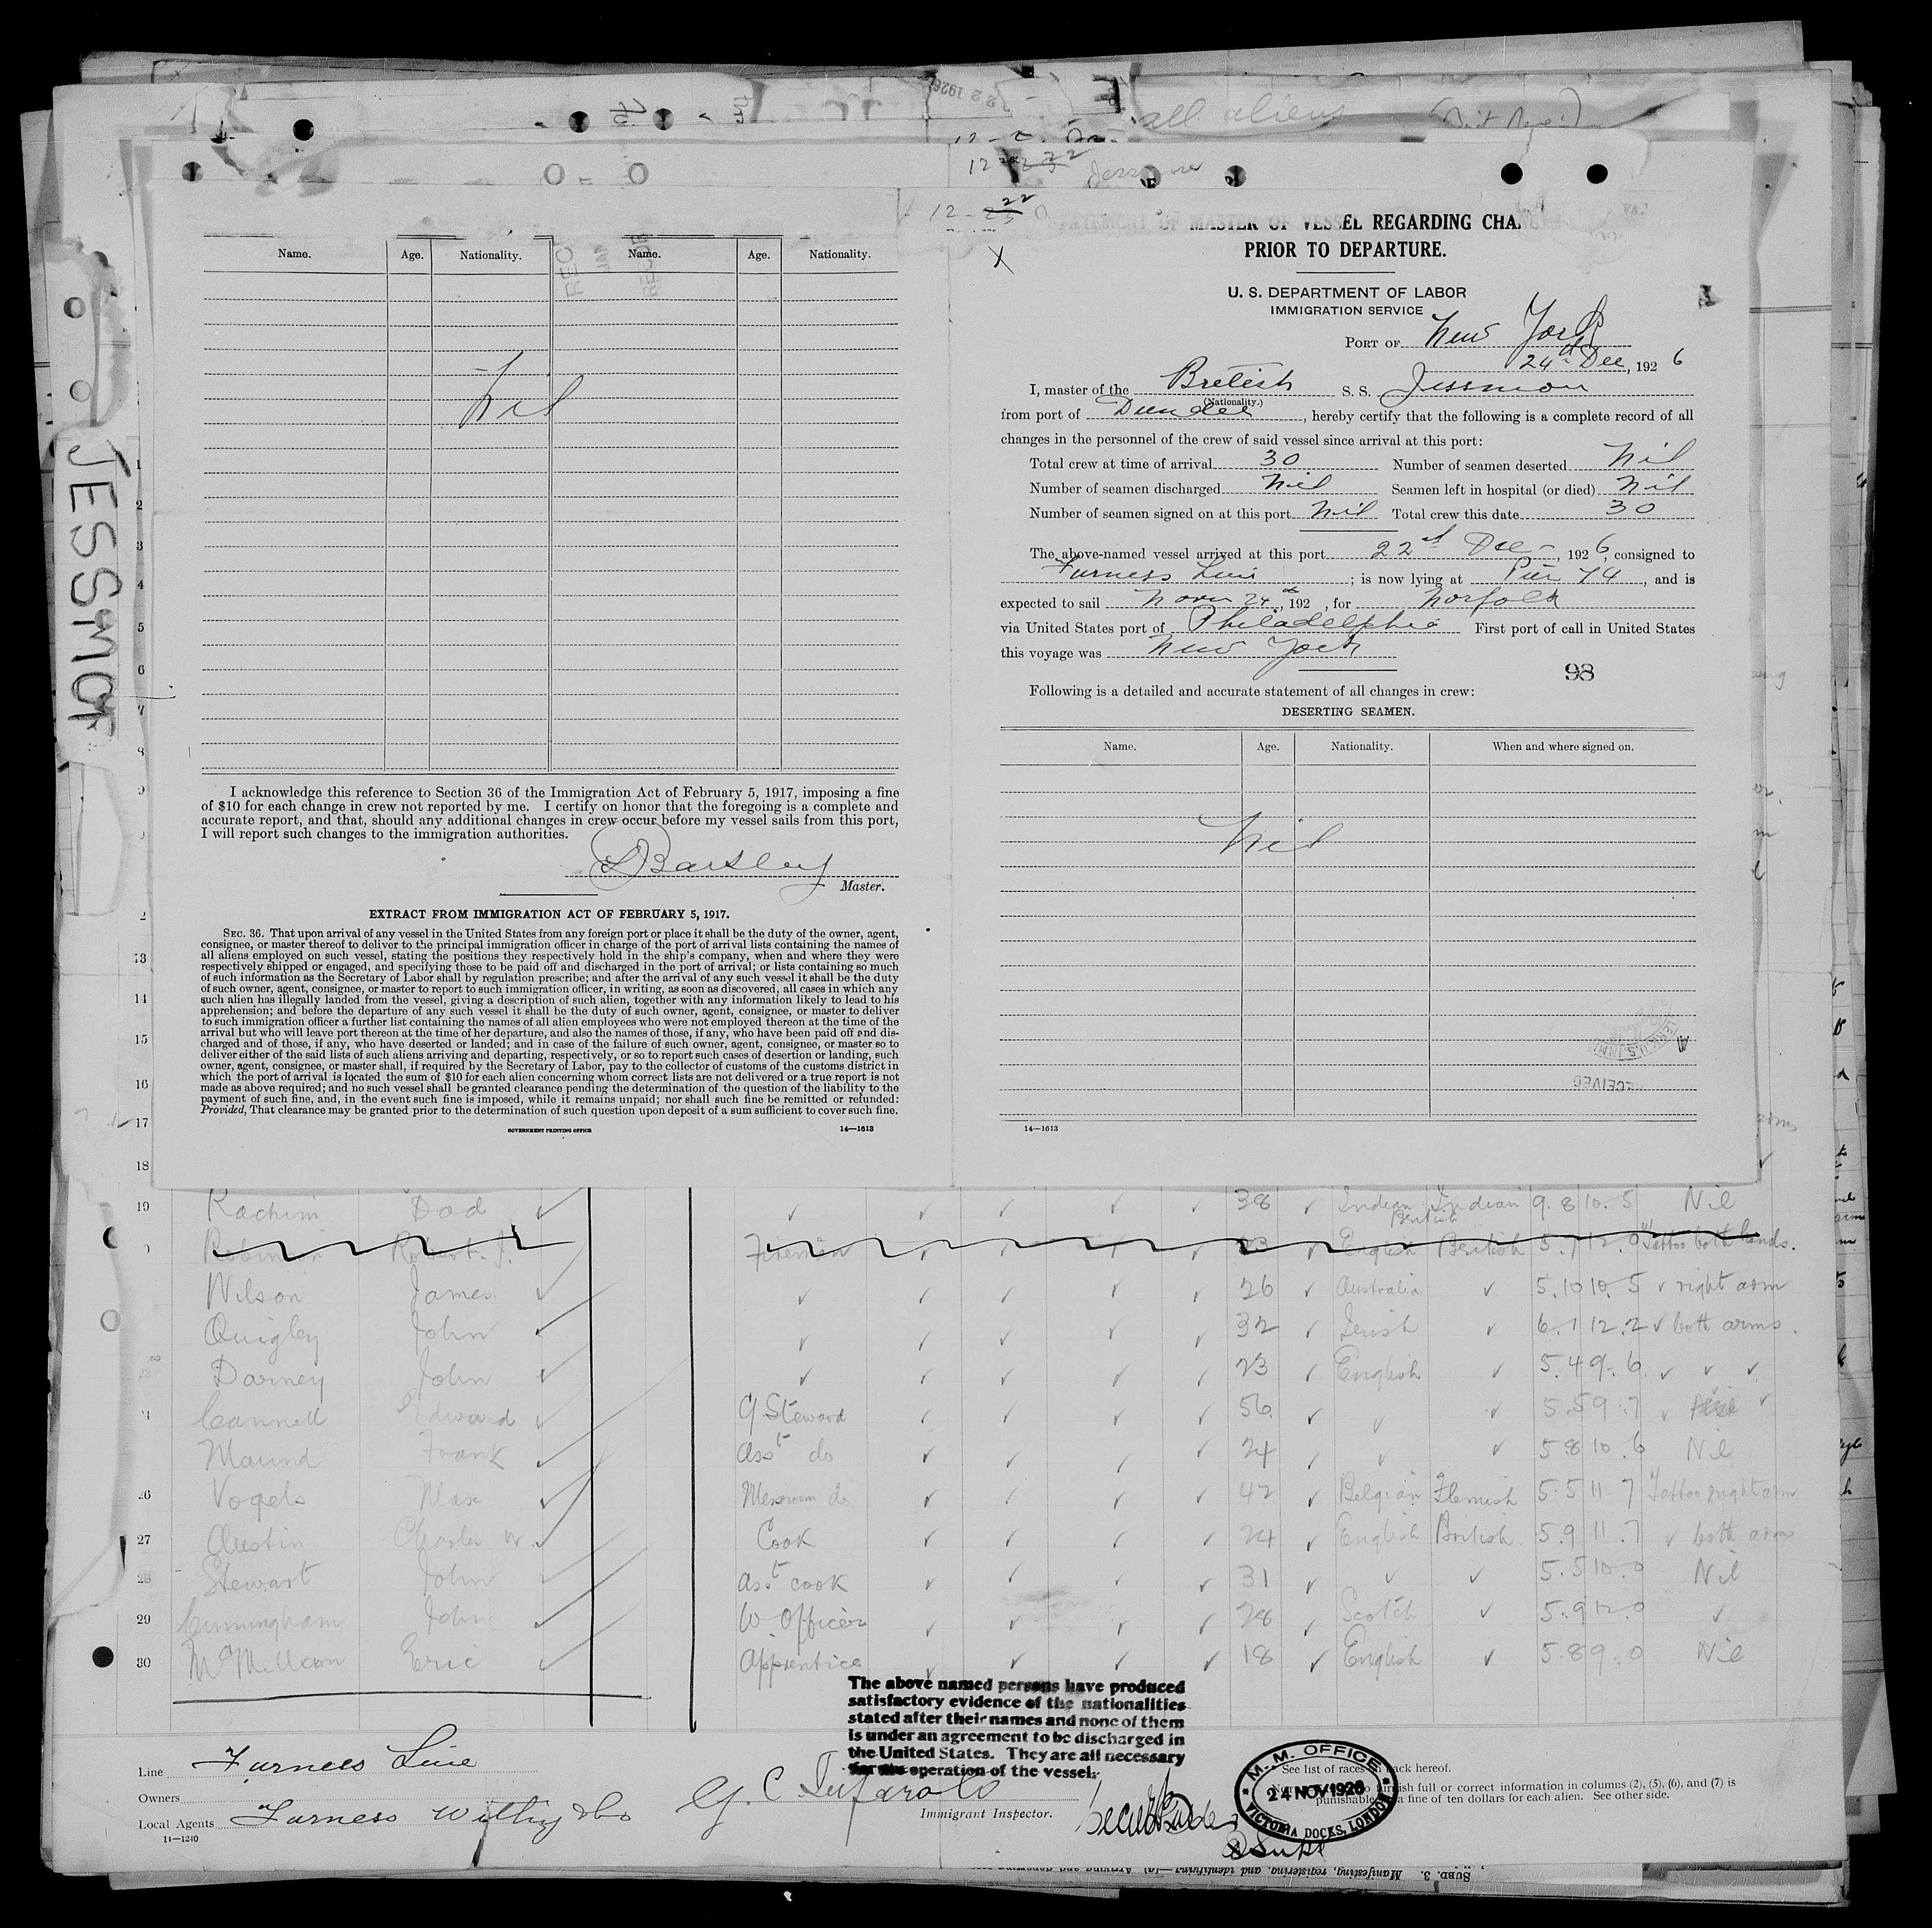 22 1926
all aliens
JESSMOR
Name. Age. Nationality. Name. Age. Nationality.
Nil
I acknowledge this reference to Section 36 of the Immigration Act of February 5, 1917, imposing a fine
of $10 for each change in crew not reported by me. I certify on honor that the foregoing is a complete and
accurate report, and that, should any additional changes in crew occur before my vessel sails from this port,
I will report such changes to the immigration authorities.
Master.
EXTRACT FROM IMMIGRATION ACT OF FEBRUARY 5, 1917.
SEC. 36. That upon arrival of any vessel in the United States from any foreign port or place it shall be the duty of the owner, agent,
consignee, or master thereof to deliver to the principal immigration officer in charge of the port of arrival lists containing the names of
all aliens employed on such vessel, stating the positions they respectively hold in the ship's company, when and where they were
respectively shipped or engaged, and specifying those to be paid off and discharged in the port of arrival; or lists containing so much
of such information as the Secretary of Labor shall by regulation prescribe; and after the arrival of any such vessel it shall be the duty
of such owner, agent, consignee, or master to report to such immigration officer, in writing, as soon as discovered, all cases in which any
such alien has illegally landed from the vessel, giving a description of such alien, together with any information likely to lead to his
apprehension; and before the departure of any such vessel it shall be the duty of such owner, agent, consignee, or master to deliver
to such immigration officer a further list containing the names of all alien employees who were not employed thereon at the time of the
arrival but who will leave port thereon at the time of her departure, and also the names of those, if any, who have been paid off and dis-
charged and of those, if any, who have deserted or landed; and in case of the failure of such owner, agent, consignee, or master so to
deliver either of the said lists of such aliens arriving and departing, respectively, or so to report such cases of desertion or landing, such
owner, agent, consignee, or master shall, if required by the Secretary of Labor, pay to the collector of customs of the customs district in
which the port of arrival is located the sum of $10 for each alien concerning whom correct lists are not delivered or a true report is not
made as above required; and no such vessel shall be granted clearance pending the determination of the question of the liability to the
payment of such fine, and, in the event such fine is imposed, while it remains unpaid; nor shall such fine be remitted or refunded:
Provided, That clearance may be granted prior to the determination of such question upon deposit of a sum sufficient to cover such fine.
GOVERNMENT PRINTING OFFICE 14—1613
STATEMENT OF MASTER OF VESSEL REGARDING CHANG
PRIOR TO DEPARTURE.
U. S. DEPARTMENT OF LABOR
IMMIGRATION SERVICE
PORT OF New York
24th Dec, 1926
I, master of the British S. S. Jessmore
(Nationality.)
from port of Dundee, hereby certify that the following is a complete record of all
changes in the personnel of the crew of said vessel since arrival at this port:
Total crew at time of arrival 30 Number of seamen deserted Nil
Number of seamen discharged Nil Seamen left in hospital (or died) Nil
Number of seamen signed on at this port Nil Total crew this date 30
The above-named vessel arrived at this port 22nd Dec, 1926, consigned to
Furness Line; is now lying at Pier 74, and is
expected to sail Noon 24th, 192 , for Norfolk
via United States port of Philadelphia First port of call in United States
this voyage was New York
98
Following is a detailed and accurate statement of all changes in crew:
DESERTING SEAMEN.
Name. Age. Nationality. When and where signed on.
Nil
RECEIVED
14—1613
19 Rachim Dad 38 Indian British Indian 9.8 10.5 Nil
Robert J. Fireman 23 English British 5.7 12.0 Tattoo both hands.
Wilson James 26 Australia 5.10 10.5 right arm
Quigley John 32 Irish 6.1 12.2 both arms.
Darney John 23 English 5.4 9.6
Cannell Edward C Steward 56 5.5 9.7
Maund Frank Asst do 24 5 8 10.6 Nil
26 Vogels Max Messroom do. 42 Belgian Flemish 5.5 11.7 Tattoo right arm
27 Austin Charles W. Cook 24 English British 5.9 11.7 both arms
28 Stewart John Asst cook 31 5.5 10.0 Nil
29 Cunningham John W. Officer 28 Scotch 5.9 12.0
30 McMillan Eric Apprentice 18 English 5.8 9.0 Nil
The above named persons have produced
satisfactory evidence of the nationalities
stated after their names and none of them
is under an agreement to be discharged in
the United States. They are all necessary
for the operation of the vessel.
Line Furness Line
Owners
Local Agents Furness Withy & Co
14—1240
Immigrant Inspector.
M. M. OFFICE
24 NOV 1926
VICTORIA DOCKS, LONDON
See list of races back hereof.
furnish full or correct information in columns (2), (5), (6), and (7) is
punishable a fine of ten dollars for each alien. See other side.
SUBD. 3. Manifesting, registering, and identifying